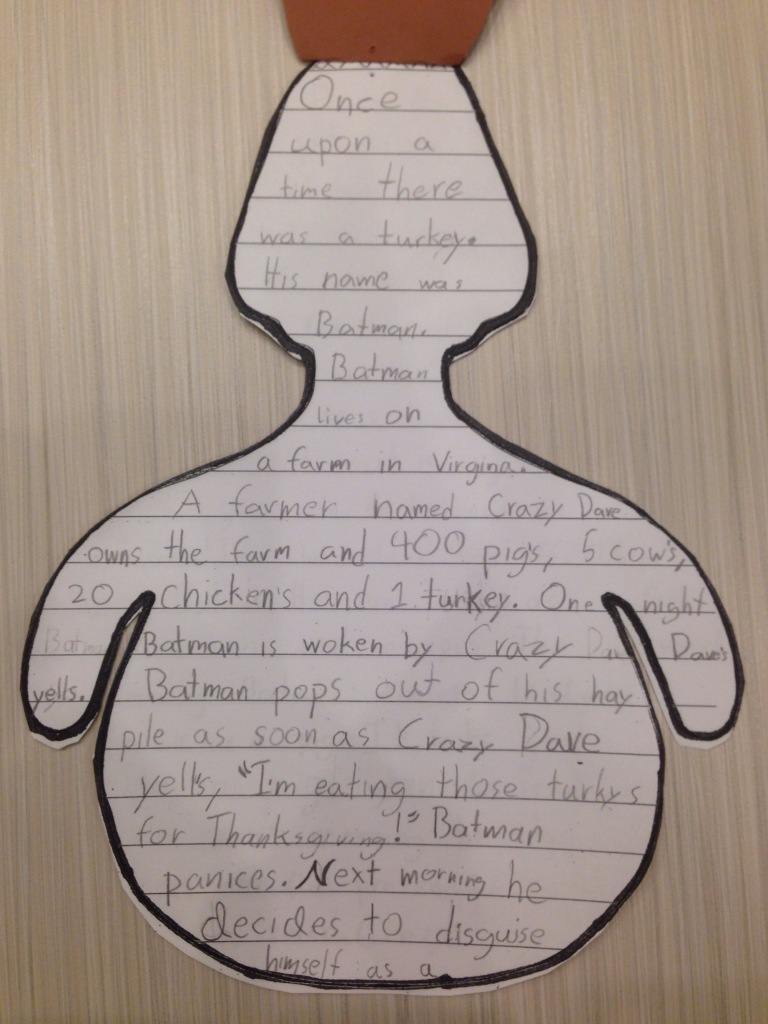 Once
upon a
time there
was a turkey.
His name was
Batman.
Batman
lives on
a farm in Virgina.
A farmer named Crazy Dave
owns the farm and 400 pig's, 5 cow's,
20 chicken's and 1 turkey. One night
Batman is woken by Crazy Dave's
yells. Batman pops out of his hay
pile as soon as Crazy Dave
yell's, "I'm eating those turkys
for Thanksgiving!" Batman
panices. Next morning he
decides to disguise
himself as a